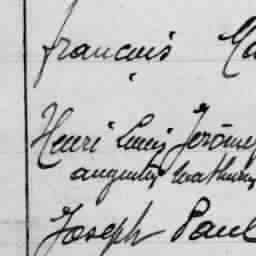 françois
Henri Louis Jérôme
augustin mathurin
Joseph Paul